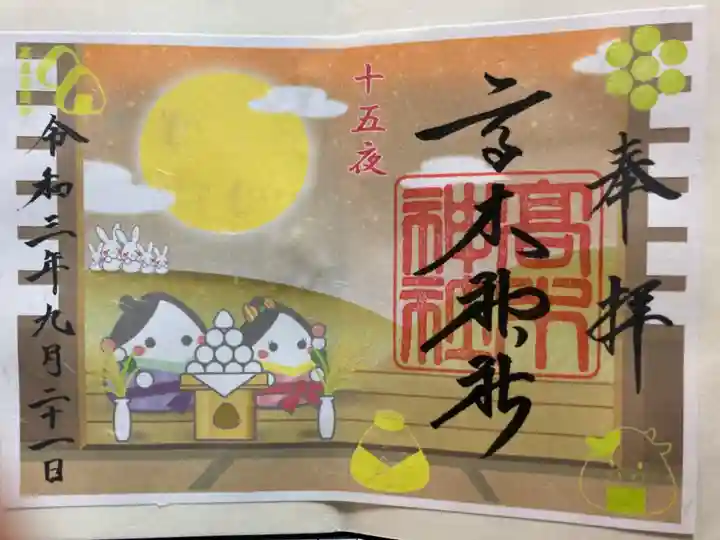 奉拝
高木神社
高木神社
十五夜
令和三年九月二十一日